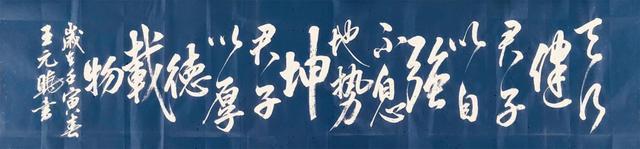 天行
健
君子
以自
強
不息
地势
坤
君子
以厚
德
載
物
歲在壬寅春
王元书